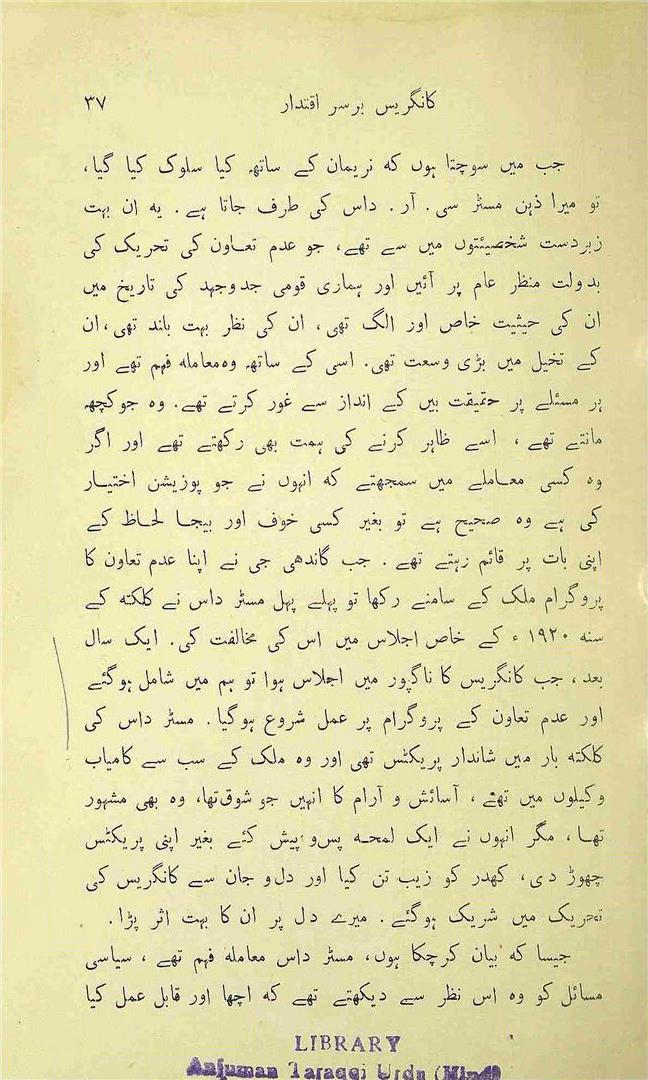 کانگریس برسر اقتدار ۳۷
جب میں سوچتا ہوں کہ نریمان کے ساتھ کیا سلوک کیا گیا،
تو میرا ذہن مسٹر سی. آر. داس کی طرف جاتا ہے. یہ ان بہت
زبردست شخصیئتوں میں سے تھے، جو عدم تعاون کی تحریک کی
بدولت منظر عام پر آئیں اور ہماری قومی جدوجہد کی تاریخ میں
ان کی حیثیت خاص اور الگ تھی، ان کی نظر بہت بلند تھی، ان
کے تخیل میں بڑی وسعت تھی. اسی کے ساتھ وہ معاملہ فہم تھے اور
ہر مسئلے پر حقیقت بیں کے انداز سے غور کرتے تھے. وہ جو کچھ
مانتے تھے، اسے ظاہر کرنے کی ہمت بھی رکھتے تھے اور اگر
وہ کسی معاملے میں سمجھتے کہ انہوں نے جو پوزیشن اختیار
کی ہے وہ صحیح ہے تو بغیر کسی خوف اور بیجا لحاظ کے
اپنی بات پر قائم رہتے تھے. جب گاندھی جی نے اپنا عدم تعاون کا
پروگرام ملک کے سامنے رکھا تو پہلے پہل مسٹر داس نے کلکتہ کے
سنہ ۱۹۲۰ء کے خاص اجلاس میں اس کی مخالفت کی. ایک سال
بعد، جب کانگریس کا ناگپور میں اجلاس ہوا تو ہم میں شامل ہوگئے
اور عدم تعاون کے پروگرام پر عمل شروع ہوگیا. مسٹر داس کی
کلکتہ بار میں شاندار پریکٹس تھی اور وہ ملک کے سب سے کامیاب
وکیلوں میں تھے، آسائش و آرام کا انہیں جو شوق تھا، وہ بھی مشہور
تھا، مگر انہوں نے ایک لمحہ پس و پیش کئے بغیر اپنی پریکٹس
چھوڑ دی، کھدر کو زیب تن کیا اور دل و جان سے کانگریس کی
تحریک میں شریک ہوگئے. میرے دل پر ان کا بہت اثر پڑا.
جیسا کہ بیان کرچکا ہوں، مسٹر داس معاملہ فہم تھے، سیاسی
مسائل کو وہ اس نظر سے دیکھتے تھے کہ اچھا اور قابل عمل کیا
LIBRARY
Anjuman Taraqqi Urdu (Hind)